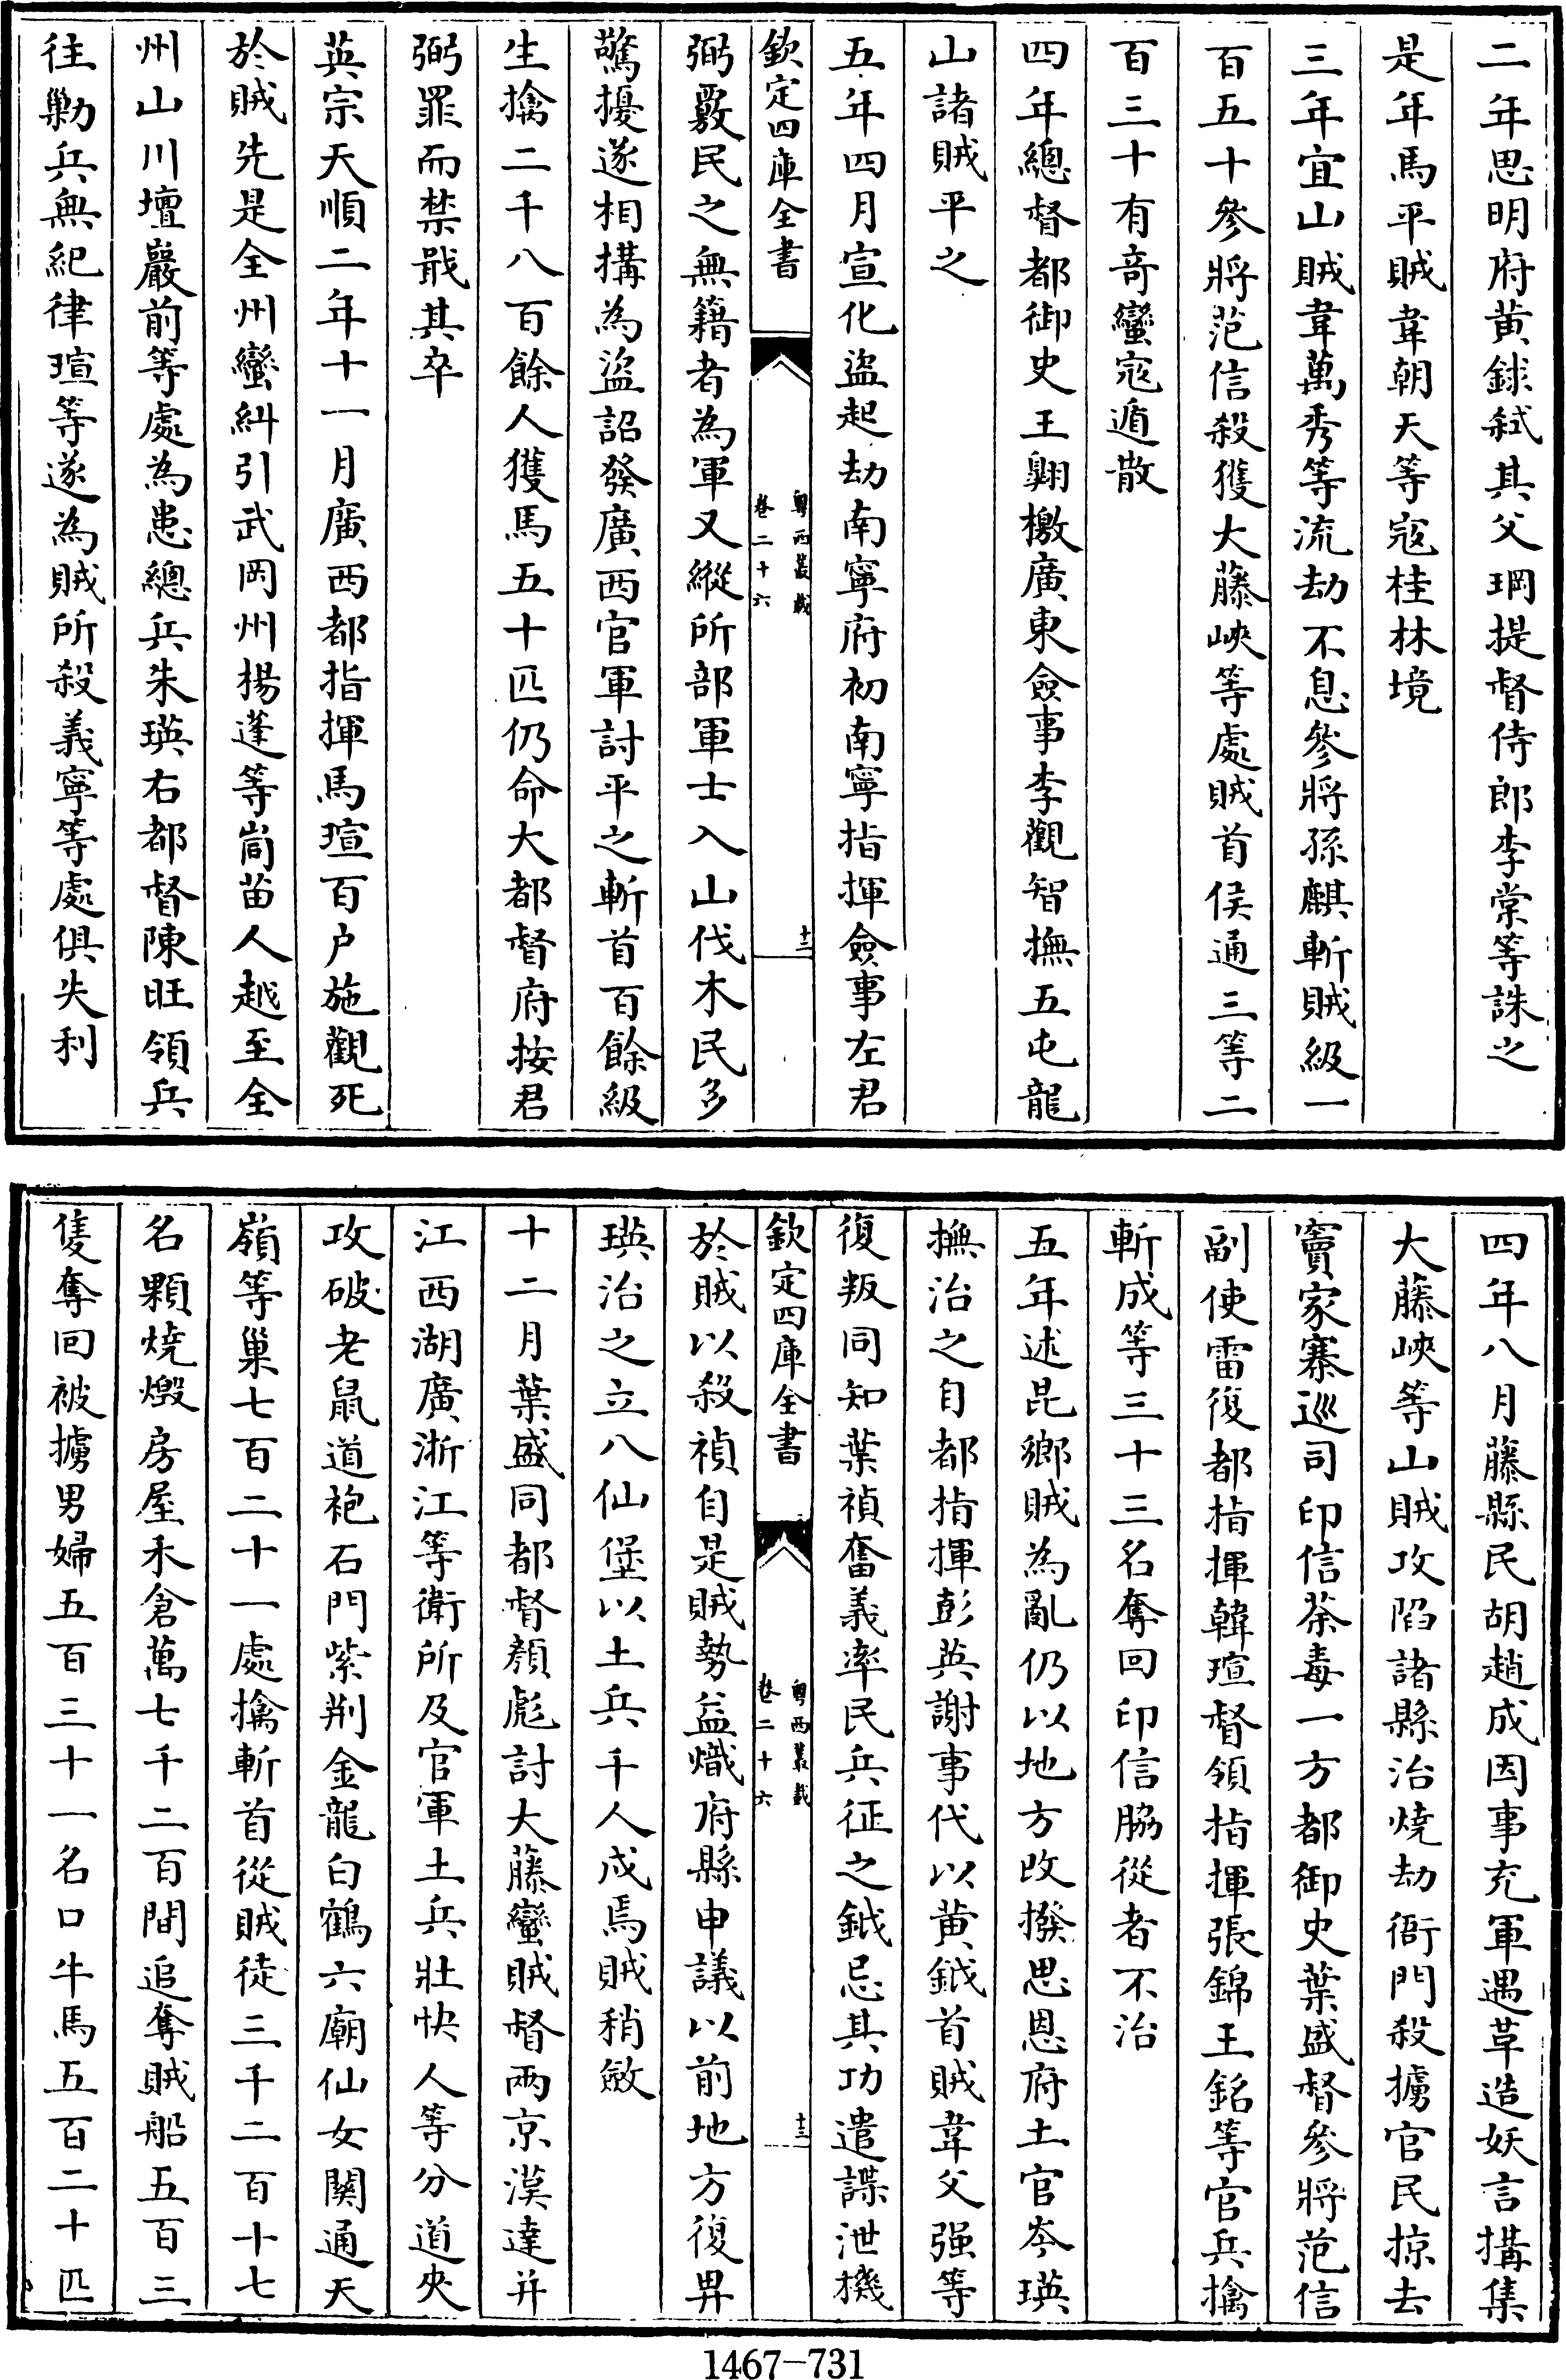 二年思明府黄䤋弑其父㺬提督侍郎李棠等誅之
是年馬平賊韋朝天等寇桂林境
三年宜山賊韋萬秀等流劫不息參將孫麒斬賊級一
百五十參將范信殺獲大藤峽等處賊首侯通三等二
百三十有竒蠻宼遁散
四年總督都御史王翺檄廣東僉事李觀智撫五屯龍
山諸賊平之
五年四月宣化盜起劫南寧府初南寧指揮僉事左君
欽定四庫全書
粤西叢載
卷二十六
十二
弼覈民之無籍者為軍又縱所部軍士入山伐木民多
驚擾遂相搆為盜詔發廣西官軍討平之斬首百餘級
生擒二千八百餘人獲馬五十匹仍命大都督府按君
弼罪而禁戢其卒
英宗天順二年十一月廣西都指揮馬瑄百户施觀死
於賊先是全州蠻糾引武岡州楊逢等峝苗人越至全
州山川壇巖前等處為患總兵朱瑛右都督陳旺領兵
往勦兵無紀律瑄等遂為賊所殺義寧等處俱失利
四年八月藤縣民胡趙成因事充軍遇草造妖言搆集
大藤峽等山賊攻陷諸縣治燒劫衙門殺擄官民掠去
竇家寨巡司印信荼毒一方都御史葉盛督參將范信
副使雷復都指揮韓瑄督領指揮張錦王銘等官兵擒
斬成等三十三名奪回印信脇從者不治
五年述昆鄉賊為亂仍以地方改撥思恩府土官岑瑛
撫治之自都指揮彭英謝事代以黄鉞首賊韋父强等
復叛同知葉禎奮義率民兵征之鉞忌其功遣諜泄機
欽定四庫全書
粤西叢載
卷二十六
十三
於賊以殺禎自是賊勢益熾府縣申議以前地方復畀
瑛治之立八仙堡以土兵千人戍焉賊稍斂
十二月葉盛同都督顏彪討大藤蠻賊督兩京漢達并
江西湖廣浙江等衛所及官軍土兵壯快人等分道夾
攻破老鼠道袍石門紫荆金龍白鶴六廟仙女關通天
嶺等巢七百二十一處擒斬首從賊徒三千二百十七
名顆燒燬房屋禾倉萬七千二百間追奪賊船五百三
隻奪回被擄男婦五百三十一名口牛馬五百二十匹
1467-731